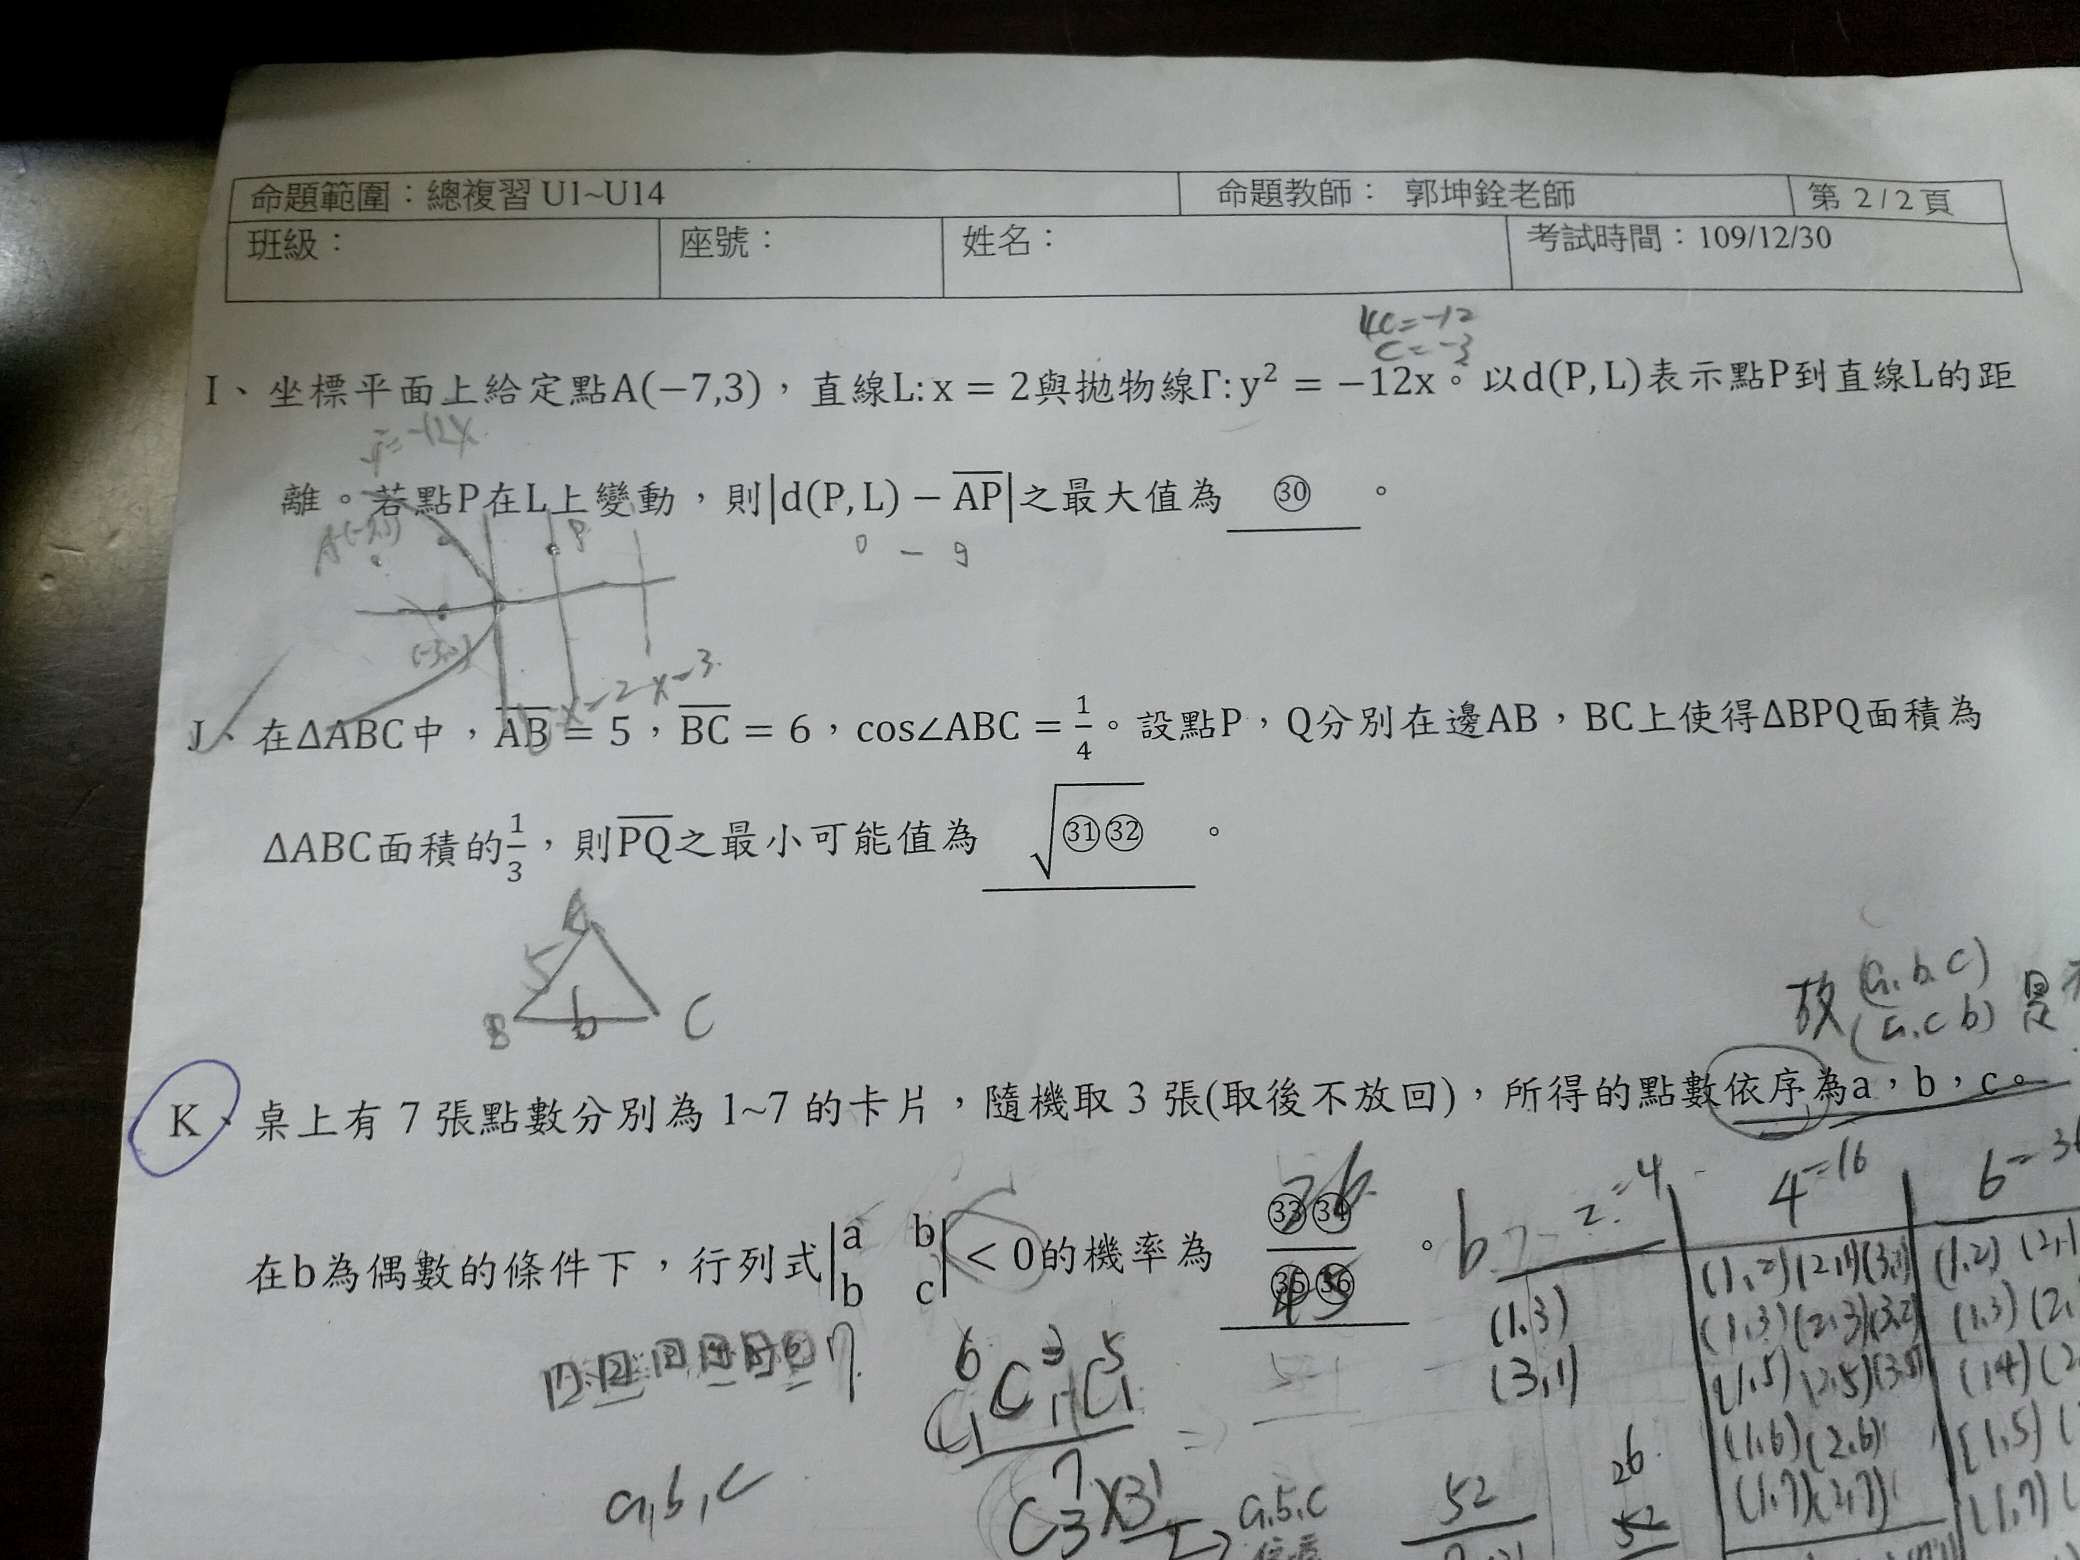 命題範圍：總複習 U1~U14 命題教師： 郭坤銓老師 第 2 / 2 頁
班級： 座號： 姓名： 考試時間：109/12/30
4c=-12
c=-3
I、坐標平面上給定點A(−7,3)，直線L: x = 2與拋物線Γ: y² = −12x。以d(P, L)表示點P到直線L的距
離。若點P在L上變動，則|d(P, L) − \overline{AP}|之最大值為 ㉚ 。
0 - 9
P
(-3,0)
x=2 x=3
J、在ΔABC中，\overline{AB} = 5，\overline{BC} = 6，cos∠ABC = 1/4。設點P，Q分別在邊AB，BC上使得ΔBPQ面積為
ΔABC面積的1/3，則\overline{PQ}之最小可能值為 √㉛㉜ 。
A
5
B 6 C
故 (a,b,c) 是
(a,c b)
K、桌上有 7 張點數分別為 1~7 的卡片，隨機取 3 張(取後不放回)，所得的點數依序為a，b，c。
在b為偶數的條件下，行列式|a b| < 0的機率為 ㉝㉞ 。
|b c| ㉟㊱
b 2=4 4=16 6=36
(1,3) (1,2)(2,1)(3,1) (1,2) (2,1
(3,1) (1,3)(2,3)(3,2) (1,3) (2,
(1,5)(2,5)(3,5) (1,4) (2
(1,6)(2,6) (1,5) (
(1,7)(2,7) (1,7) (
7
a,b,c
a,b,c
52
26
52